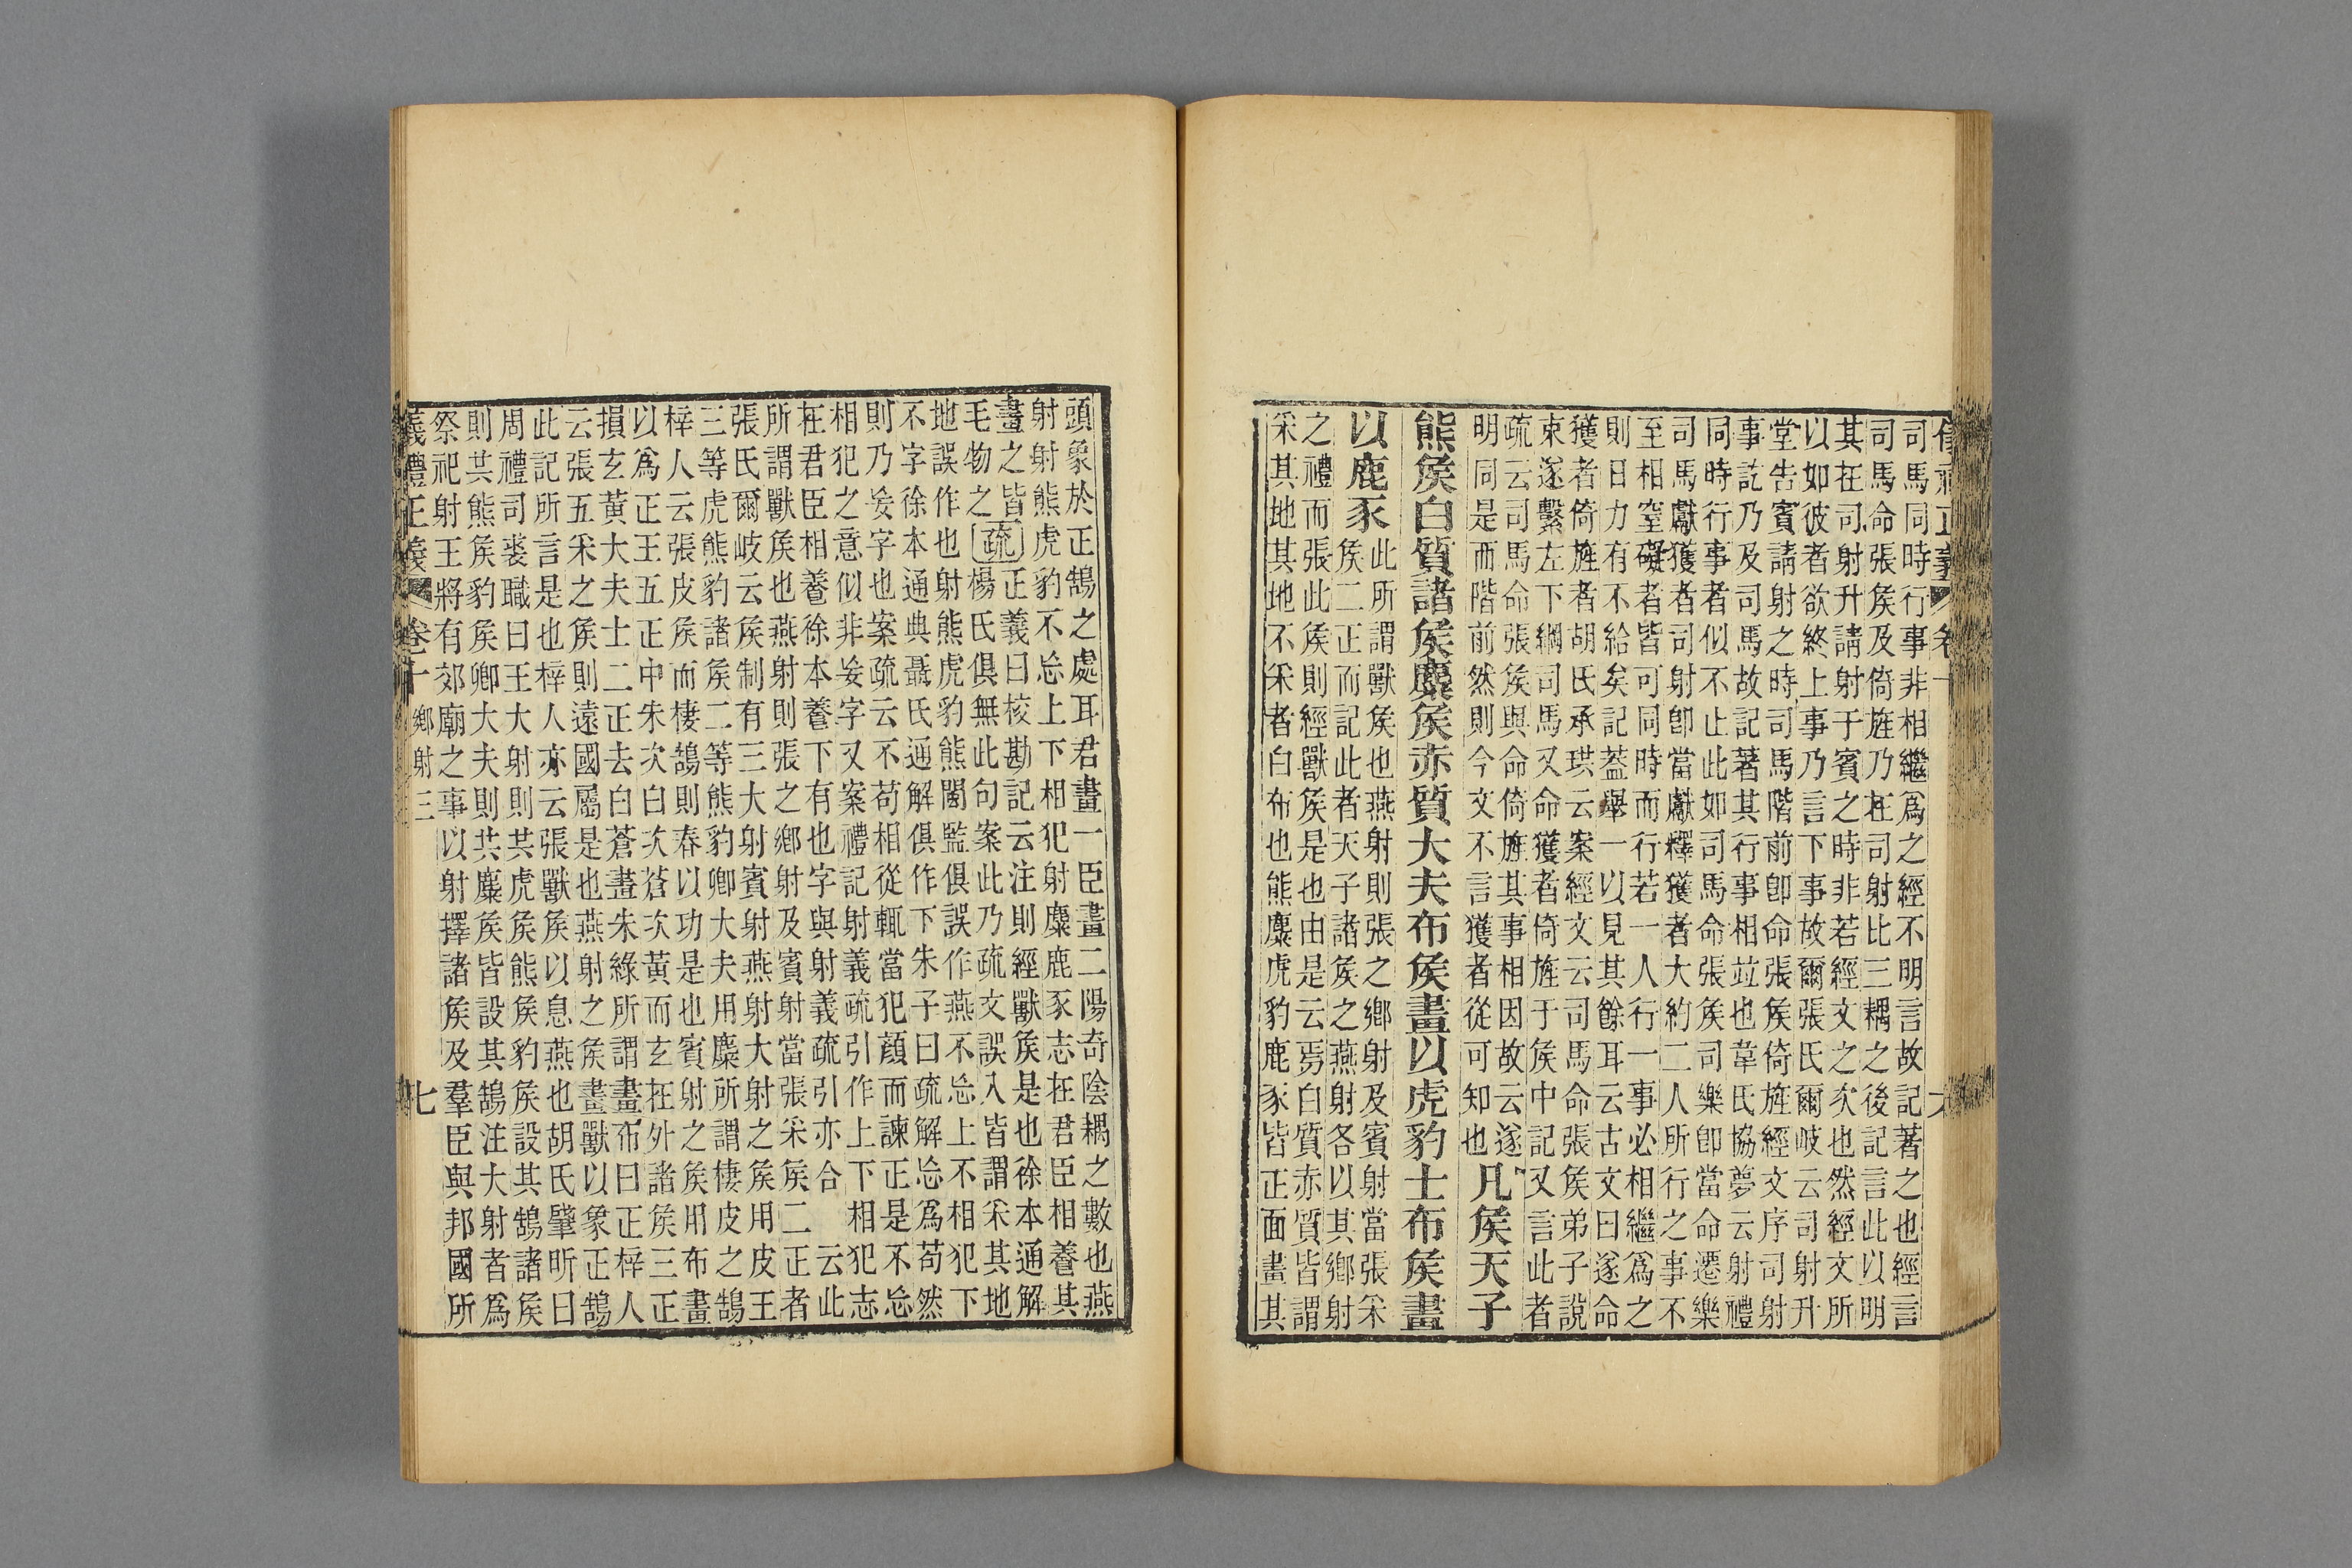 司馬同時行事非相繼爲之經不明言故記著之也經言
司馬命張侯及倚旌乃在司射比三耦之後記言此以明
其在司射升請射于賓之時非若經文之次也然經文所
以如彼者欲終上事乃言下事故爾張氏爾岐云司射升
堂告賓請射之時司馬階前卽命張侯倚旌經文序司射
事訖乃及司馬故記著其行事相竝也韋氏協夢云射禮
同時行事者似不止此如司馬命張侯司樂卽當命遷樂
司馬獻獲者司射卽當獻釋獲者大約二人所行之事不
至相窒礙者皆可同時而行若一人行一事必相繼爲之
則日力有不給矣記蓋舉一以見其餘耳云古文曰遂命
獲者倚旌者胡氏承珙云案經文云司馬命張侯弟子說
束遂繫左下綱司馬又命獲者倚旌于侯中記又言此者
疏云司馬命張侯與命倚旌其事相因故云遂
明同是而階前然則今文不言獲者從可知也
凡侯天子
熊侯白質諸侯麋侯赤質大夫布侯畫以虎豹士布侯畫
以鹿豕
此所謂獸侯也燕射則張之鄉射及賓射當張采
侯二正而記此者天子諸侯之燕射各以其鄉射
之禮而張此侯則經獸侯是也由是云焉白質赤質皆謂
采其地其地不采者白布也熊麋虎豹鹿豕皆正面畫其
頭象於正鵠之處耳君畫一臣畫二陽奇陰耦之數也燕
射射熊虎豹不忘上下相犯射麋鹿豕志在君臣相養其
畫之皆
毛物之
疏
正義曰校勘記云注則經獸侯是也徐本通解
楊氏俱無此句案此乃疏文誤入皆謂采其地
地誤作也射熊虎豹熊閩監俱誤作燕不忘上不相犯下
不字徐本通典聶氏通解俱作下朱子曰疏解忘爲苟然
則乃妄字也案疏云不苟相從輒當犯顔而諫正是不忘
相犯之意似非妄字又案禮記射義疏引作上下相犯志
在君臣相養徐本養下有也字與射義疏引亦合 云此
所謂獸侯也燕射則張之鄉射及賓射當張采侯二正者
張氏爾岐云侯制有三大射賓射燕射大射之侯用皮王
三等虎熊豹諸侯二等熊豹卿大夫用麋所謂棲皮之鵠
梓人云張皮侯而棲鵠則春以功是也賓射之侯用布畫
以爲正王五正中朱次白次蒼次黃而玄在外諸侯三正
損玄黃大夫士二正去白蒼畫朱綠所謂畫布曰正梓人
云張五采之侯則遠國屬是也燕射之侯畫獸以象正鵠
此記所言是也梓人亦云張獸侯以息燕也胡氏肇昕曰
周禮司裘職曰王大射則共虎侯熊侯豹侯設其鵠諸侯
則共熊侯豹侯卿大夫則共麋侯皆設其鵠注大射者爲
祭祀射王將有郊廟之事以射擇諸侯及羣臣與邦國所
儀禮正義 卷十 鄉射三 七